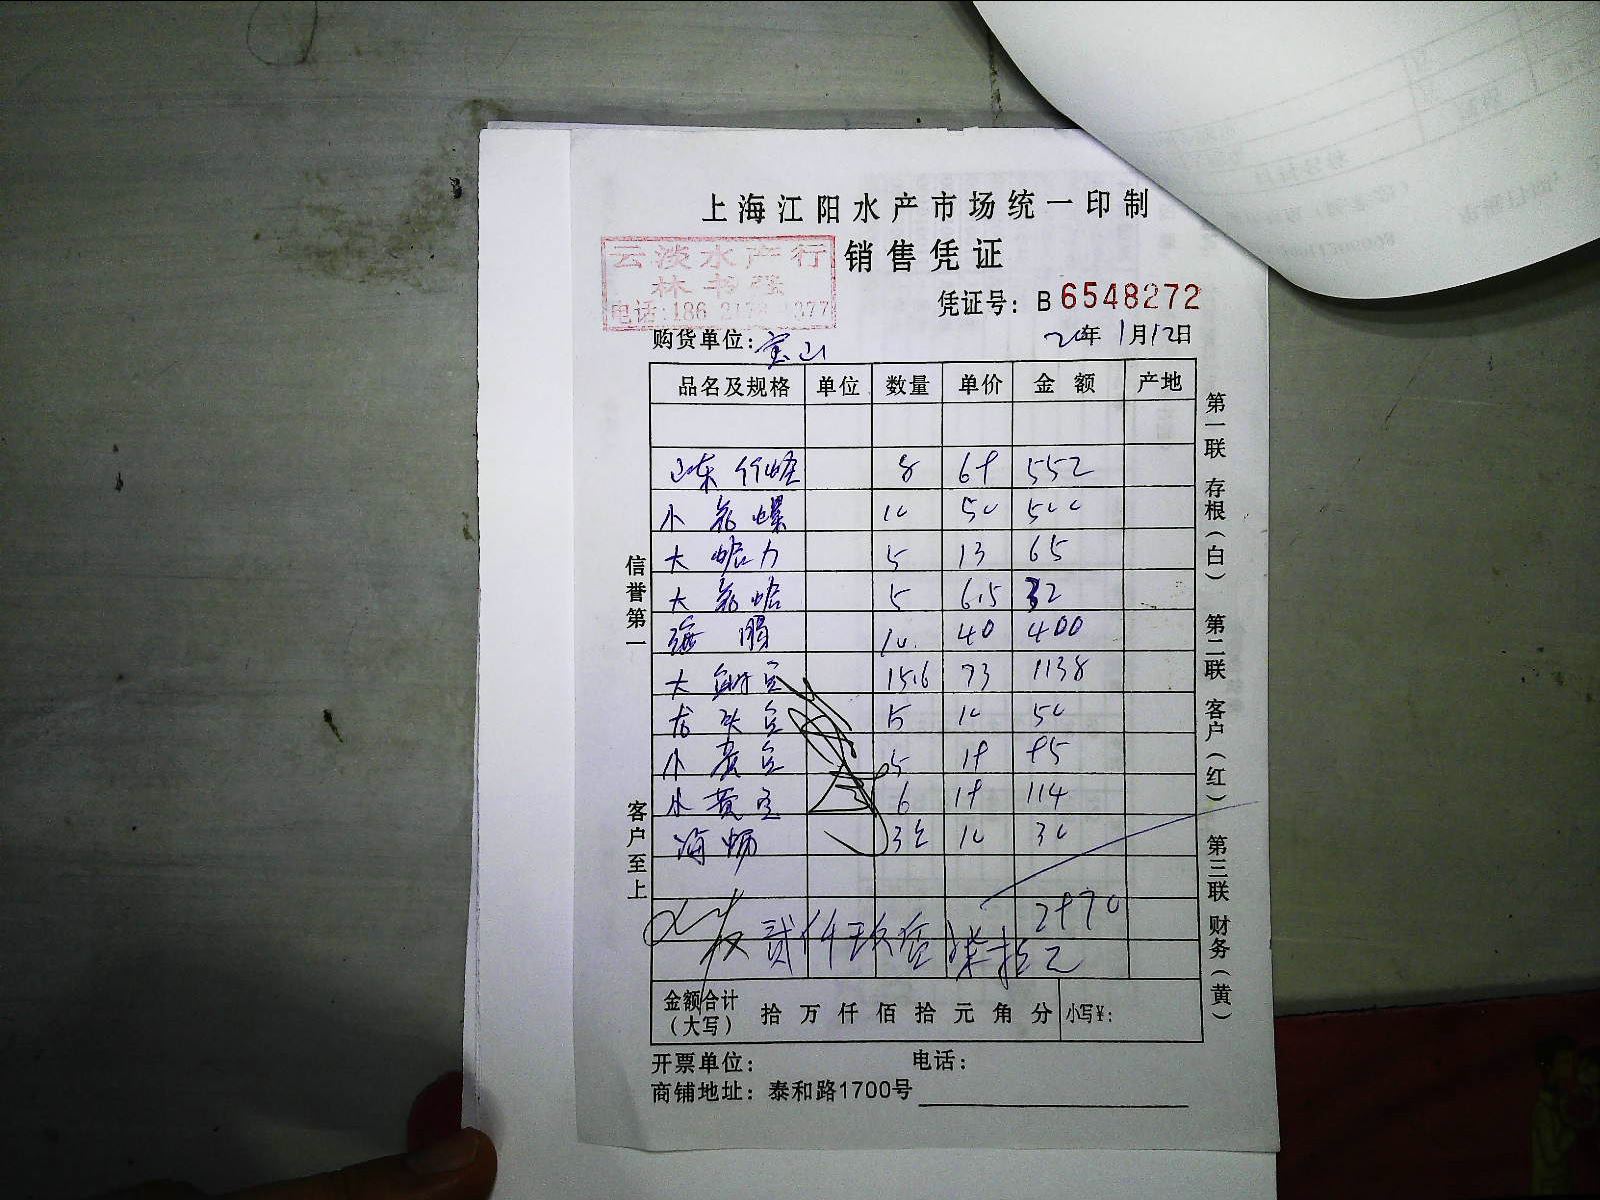 上海江阳水产市场统一印制
销售凭证
云淡水产行
林书强
电话:186
凭证号: B 6548272
购货单位: 宝山
20年 1月12日
品名及规格 单位 数量 单价 金 额 产地
山东竹蛏 8 69 552
小花螺 10 50 500
大蛤力 5 13 65
大花蛤 5 6.5 32
海 10 40 400
大 15.6 73 1138
龙头 5 10 50
小 5 19 95
小黄 6 19 114
海 3 10 30
2970
贰仟玖佰柒拾元
金额合计
(大写) 拾 万 仟 佰 拾 元 角 分 小写¥:
开票单位: 电话:
商铺地址: 泰和路1700号
信誉第一
客户至上
第一联 存根(白) 第二联 客户(红) 第三联 财务(黄)